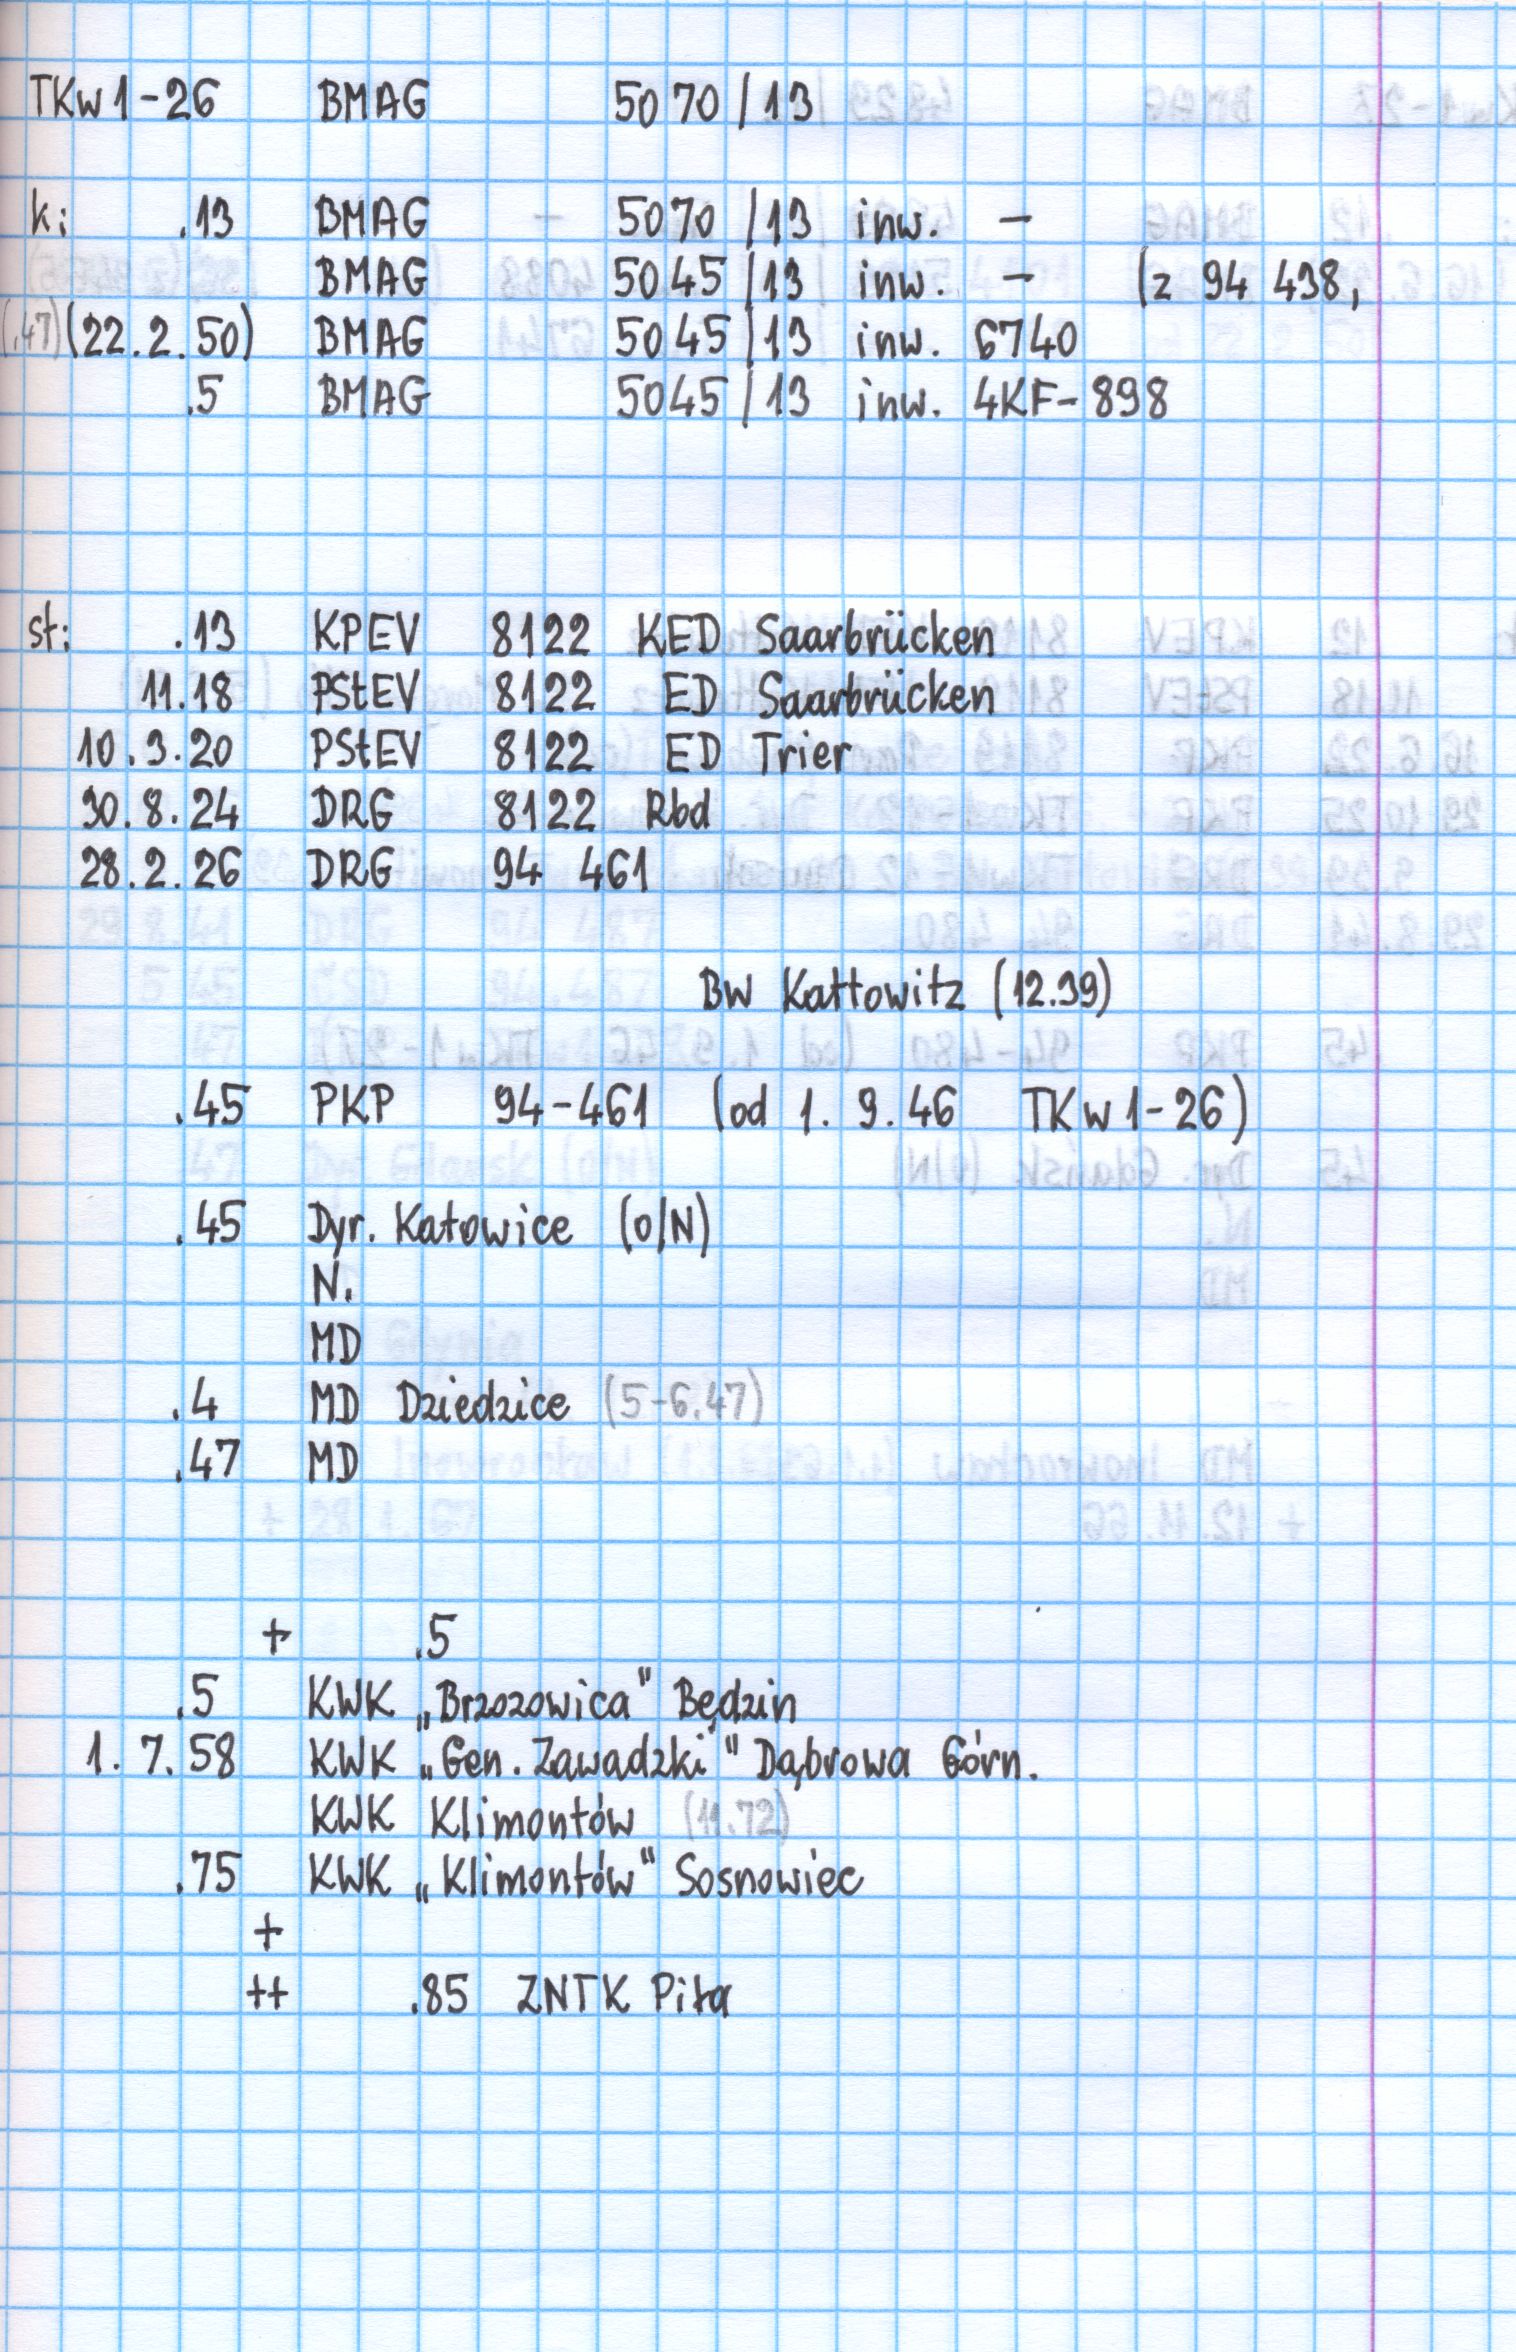 TKw1-26 BMAG 5070/13
k: .13 BMAG 5070/13 inw. -
BMAG 5045/13 inw. - (z 94 438,
(.47) (22.2.50) BMAG 5045/13 inw. 6740
.5 BMAG 5045/13 inw. 4KF-898
st: .13 KPEV 8122 KED Saarbrücken
11.18 PStEV 8122 ED Saarbrücken
10.3.20 PStEV 8122 ED Trier
30.8.24 DRG 8122 Rbd
28.2.26 DRG 94 461
Bw Kattowitz (12.39)
.45 PKP 94-461 (od 1.9.46 TKw1-26)
.45 Dyr. Katowice (O/N)
N.
MD
.4 MD Dziedzice (5-6.47)
.47 MD
+ .5
.5 KWK „Brzozowica" Będzin
1.7.58 KWK „Gen. Zawadzki" Dąbrowa Górn.
KWK Klimontów (11.72)
.75 KWK „Klimontów" Sosnowiec
+
++ .85 ZNTK Piła